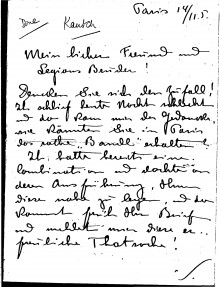 Paris 14/11 5.
Kautsch
Mein lieber Freund und
Legions Bruder!
Denken Sie sich den Zufall!
Ich schlief heute Nacht schlecht
und da kam mir der Gedanke,
wie könnten Sie in Paris
das rothe Bandl erhalten?
Ich hatte bereits eine
Combination und dachte an
deren Ausführung, Ihnen
diese nahe zu legen, und da
kommt früh Ihr Brief
und meldet mir diese
freuliche Thatsache!